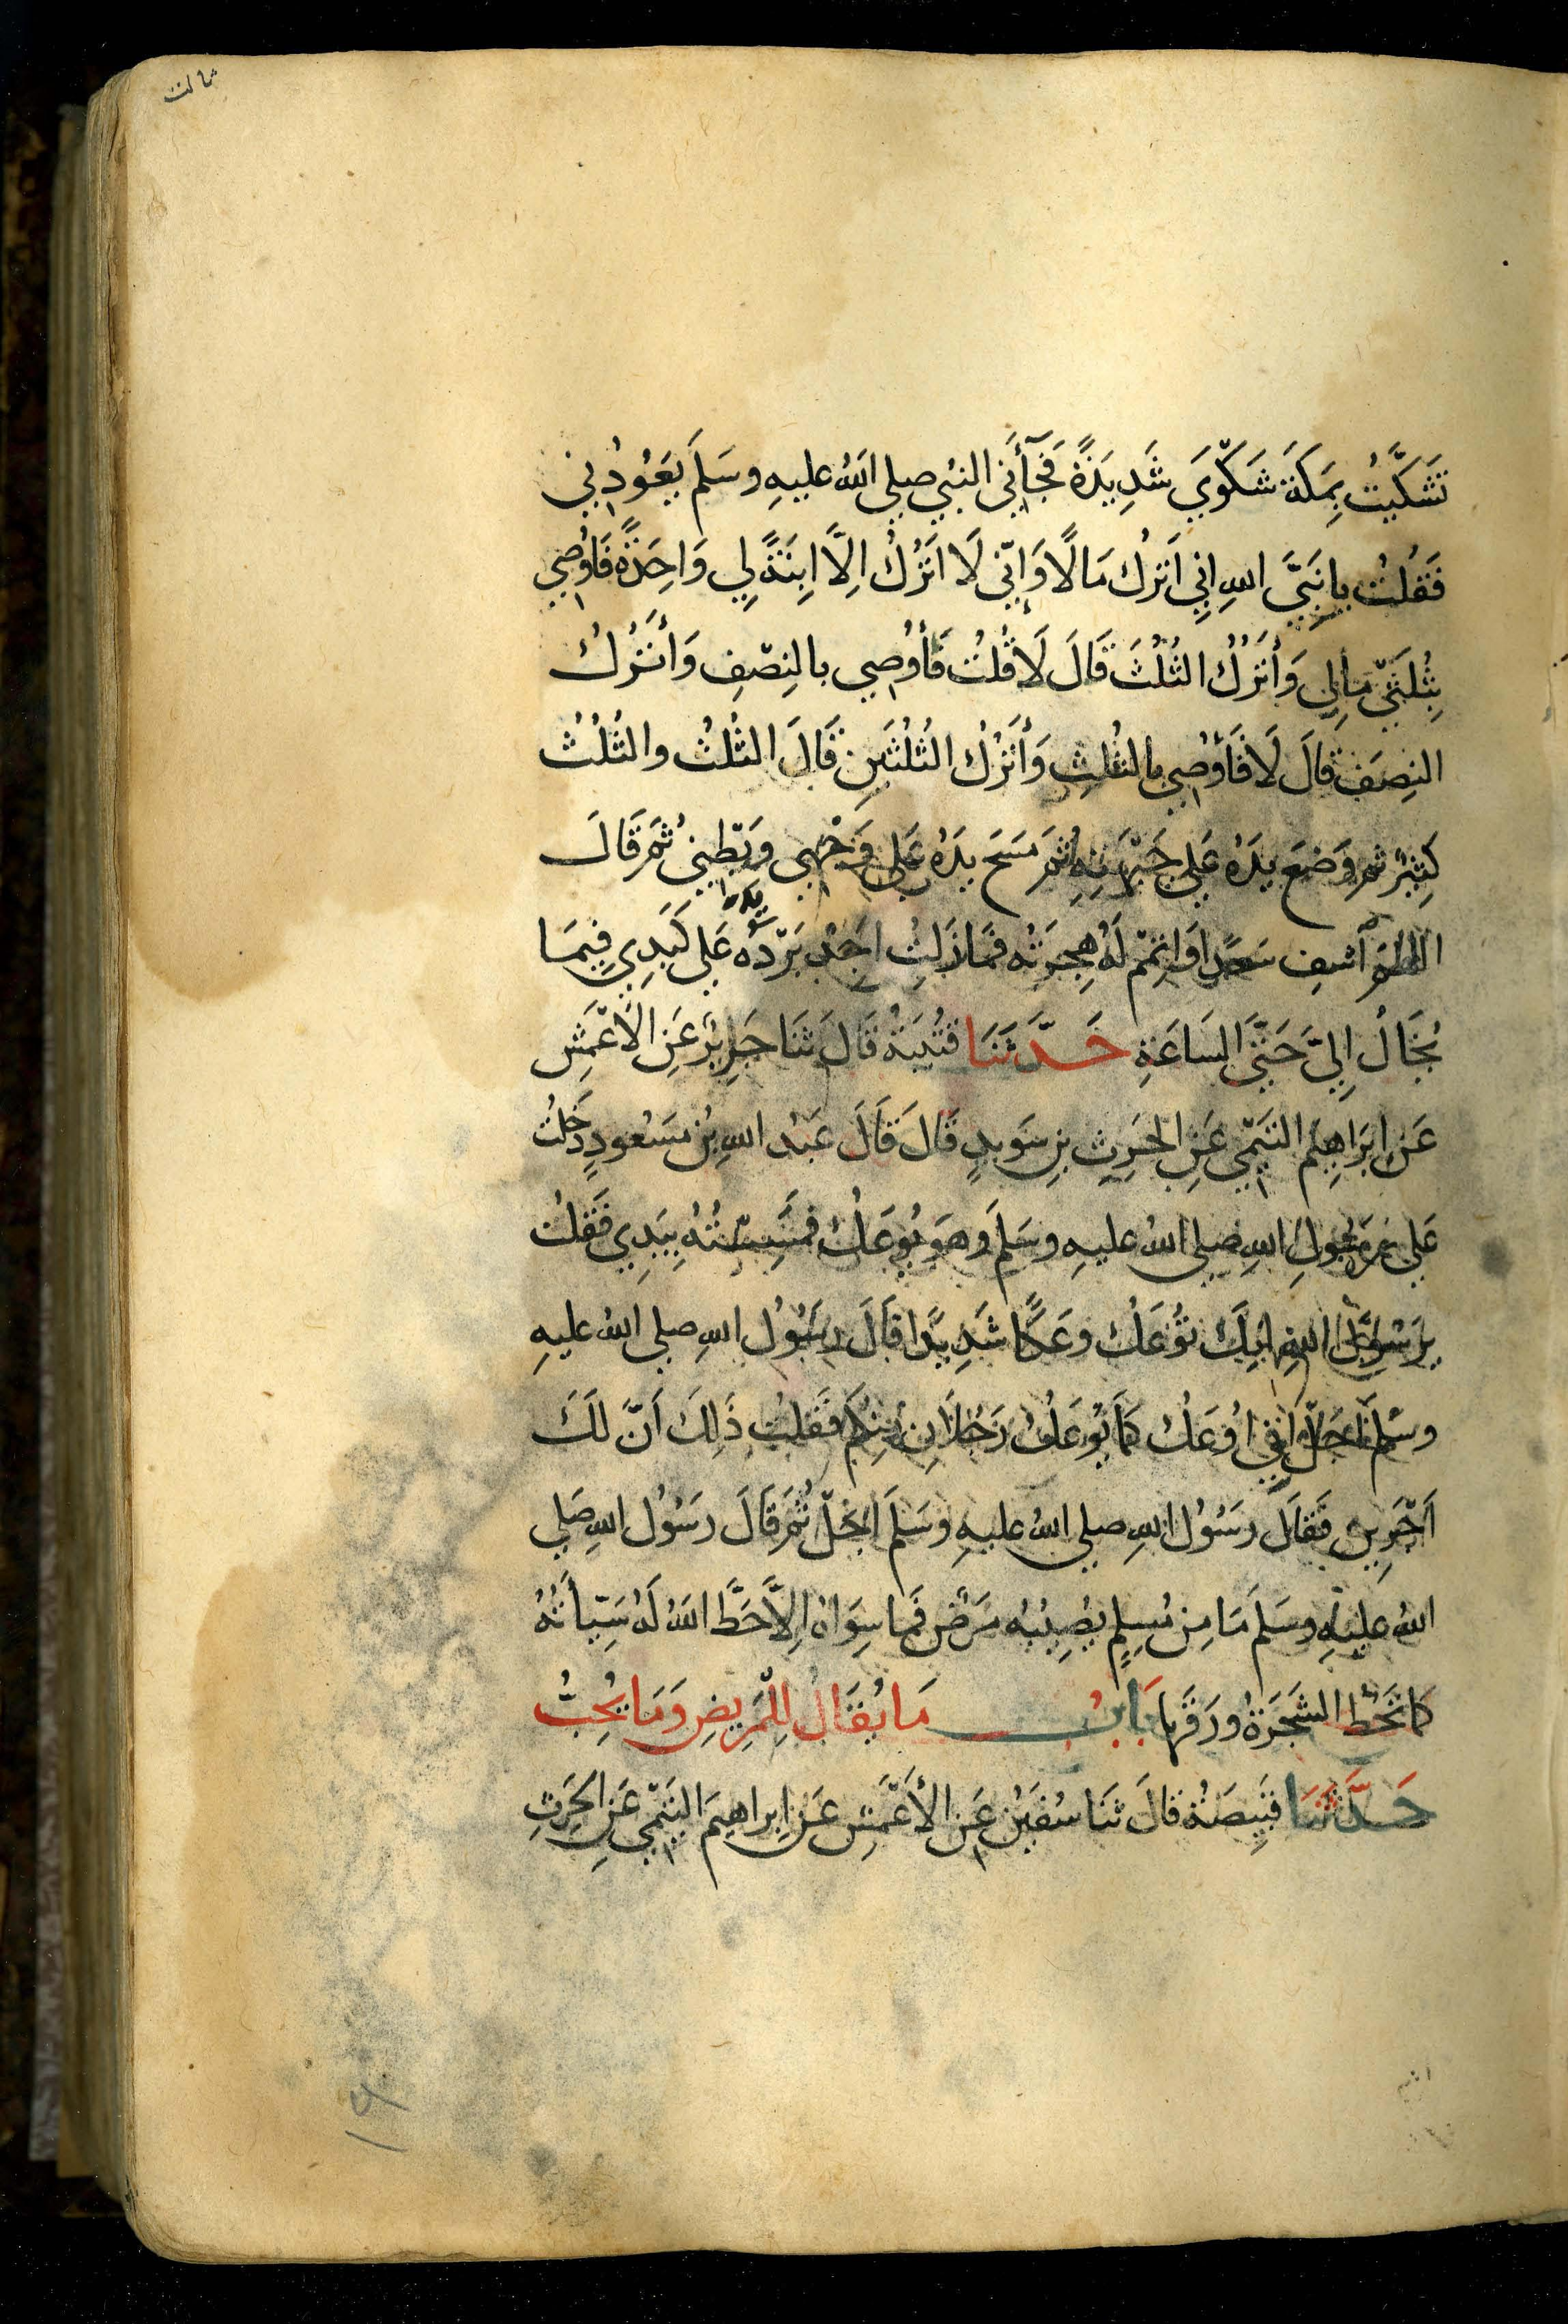 ثالث
تَشَكَّيْتُ بِمَكَةَ شَكْوَيَ شَدِيدَةً فَجَآءَنِي النبي صلي اللهُ عليهِ وسَلَم يَعُودُنِي
فَقُلتُ يا نَبِيَّ اللهِ اِنِي اَترُكُ مَالًا وَاِنّي لَا اَتْرُكُ اِلَّا ابنَةً لِي وَاحِدَةً فَاُوْصِي
بِثُلثَيْ مَالِي وَأتركُ الثُلُثَ قَالَ لَا قُلتُ فَأُوْصِي بالنِصْفِ وَأَتْرُكُ
النِصَف قالَ لَا فَأُوْصِي بالثُلثِ وَأترُك الثُلثَينِ قَالَ الثُلثُ والثُلثُ
كَثِيرٌ ثمر وَضعَ يدَهُ عَلي جَبْهَتِهِ ثمر مَسَحَ يدَهُ عَلي وَجْهِي وَبَطْنِي ثمر قَالَ
اللهمَ اَشفِ سَعدًا وَاتمِمْ لَهُ هِجرَتْه فمَا زِلتُ اَجِدُ بَرْدَهُ عَلي كَبَدِي فِيمَا
يُخَالُ اِلَيَّ حَتَّي السَاعَةِ حَدَّثَنَا قتُيبَةُ قَالَ ثنَا جَرِيرٌ عَن الاعْمَشِ
عَن ابَراهِيم التَيْمِي عَنِ الحرِثِ بنِ سَويدٍ قَالَ قَالَ عَبْد اللهِ بن مسَعُودٍ دَخلتُ
عَلي رسُولِ اللهِ صلي اللهُ عليهِ وسَلَم وهوَ يُوعَكُ فمسِسْتُهُ بِيَدِي فَقلتُ
يرسُولَ اللهِ اِنكَ تُوْعَكُ وعَكًا شَدِيدًا قَالَ رسُولُ اللهِ صلي اللهُ عليهِ
وسَلم اَجَلْ اِنِي اُوعَكُ كمَا يُوْعَكُ رَجُلَانِ مِنكُم فَقُلتُ ذَلِكَ اَنَّ لكَ
اَجْرَينِ فقَالَ رسُولُ اللهِ صلي اللهُ عليهِ وَسَلَم اَجَلْ ثُمر قَالَ رَسُول اللهِ صَلي
اللهُ عليهِ وسَلَم مَا مِن مُسلِمٍ يصِيبُه مَرَضٌ فَما سِوَاهُ اِلَّا حَطَّ اللهُ لَهُ سَيّأتهُ
كَما تَحُطُ الشَجَرَةُ ورَقَها بَابُ مَا يُقَالُ لِلْمَرِيضِ وَمَا يُجِيبُ
حَدَّثَنَا قَبِيصَةُ قالَ ثنَا سُفيَنُ عَن الأعْمَشِ عَن ابراهيم التَيمْي عَنِ الحَرثِ